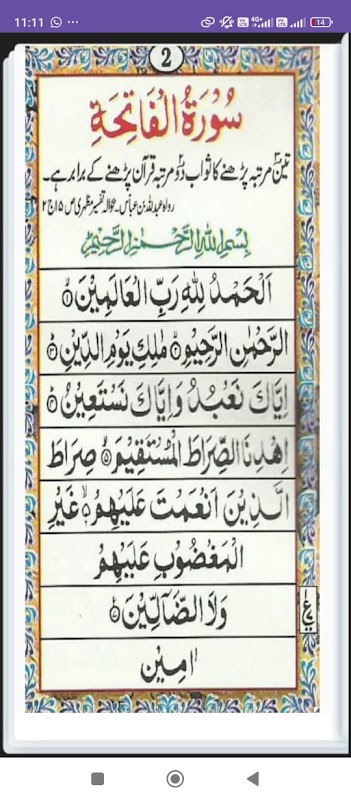 11:11
4G+
14
2
سُوْرَةُ الْفَاتِحَةِ
تین مرتبہ پڑھنے کا ثواب دو مرتبہ قرآن پڑھنے کے برابر ہے۔
رواہ عبداللہ بن عباس۔ بحوالہ تفسیر مظہری ص ۱۵ ج ۲
بِسْمِ اللهِ الرَّحْمٰنِ الرَّحِيْمِ
اَلْحَمْدُ لِلّٰهِ رَبِّ الْعَالَمِيْنَ ۙ﴿۱﴾
الرَّحْمٰنِ الرَّحِيْمِ ۙ﴿۲﴾ مٰلِكِ يَوْمِ الدِّيْنِ ؕ﴿۳﴾
اِيَّاكَ نَعْبُدُ وَاِيَّاكَ نَسْتَعِيْنُ ؕ﴿۴﴾
اِهْدِنَا الصِّرَاطَ الْمُسْتَقِيْمَ ۙ﴿۵﴾ صِرَاطَ
الَّذِيْنَ اَنْعَمْتَ عَلَيْهِمْ ۙ﴿۶﴾ غَيْرِ
الْمَغْضُوْبِ عَلَيْهِمْ
وَلَا الضَّآلِّيْنَ ﴿۷﴾
اٰمِيْن